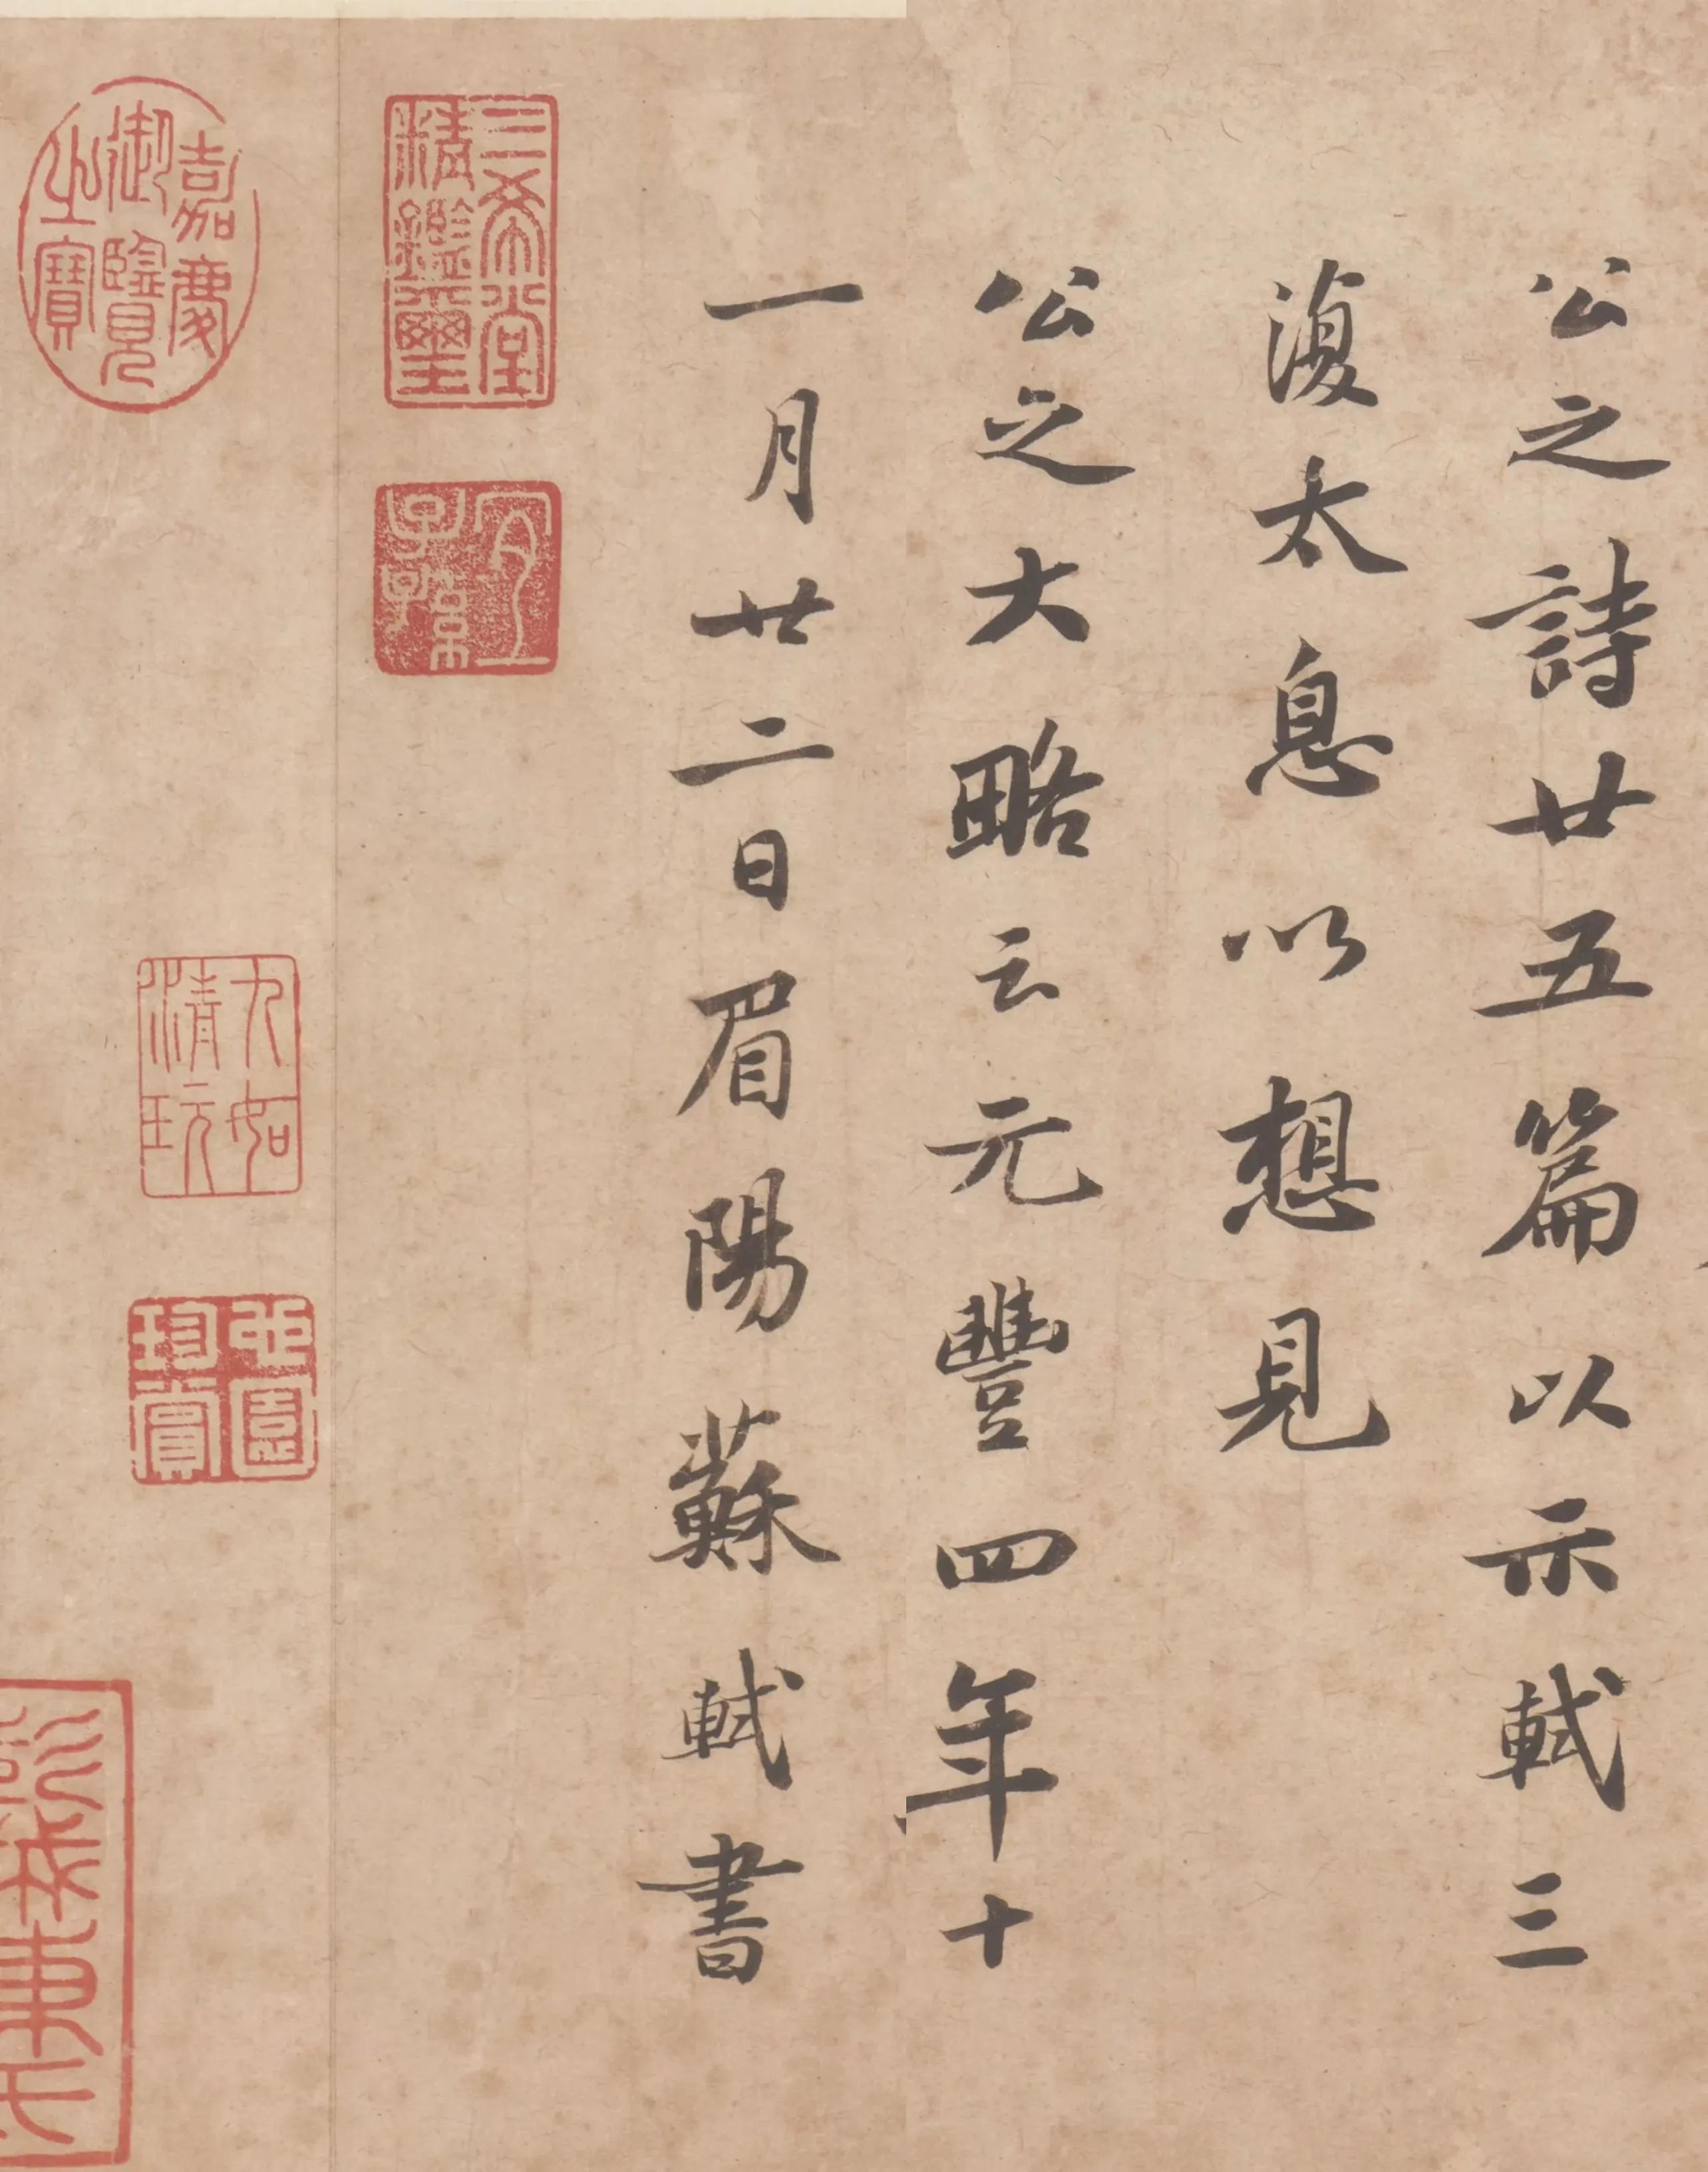 公之詩廿五篇以示軾三
復太息以想見
公之大略云元豐四年十
一月廿二日眉陽蘇軾書
三希堂
精鑑璽
宜
子孫
嘉慶
御覽
之寶
九如
清玩
亞園
珍賞